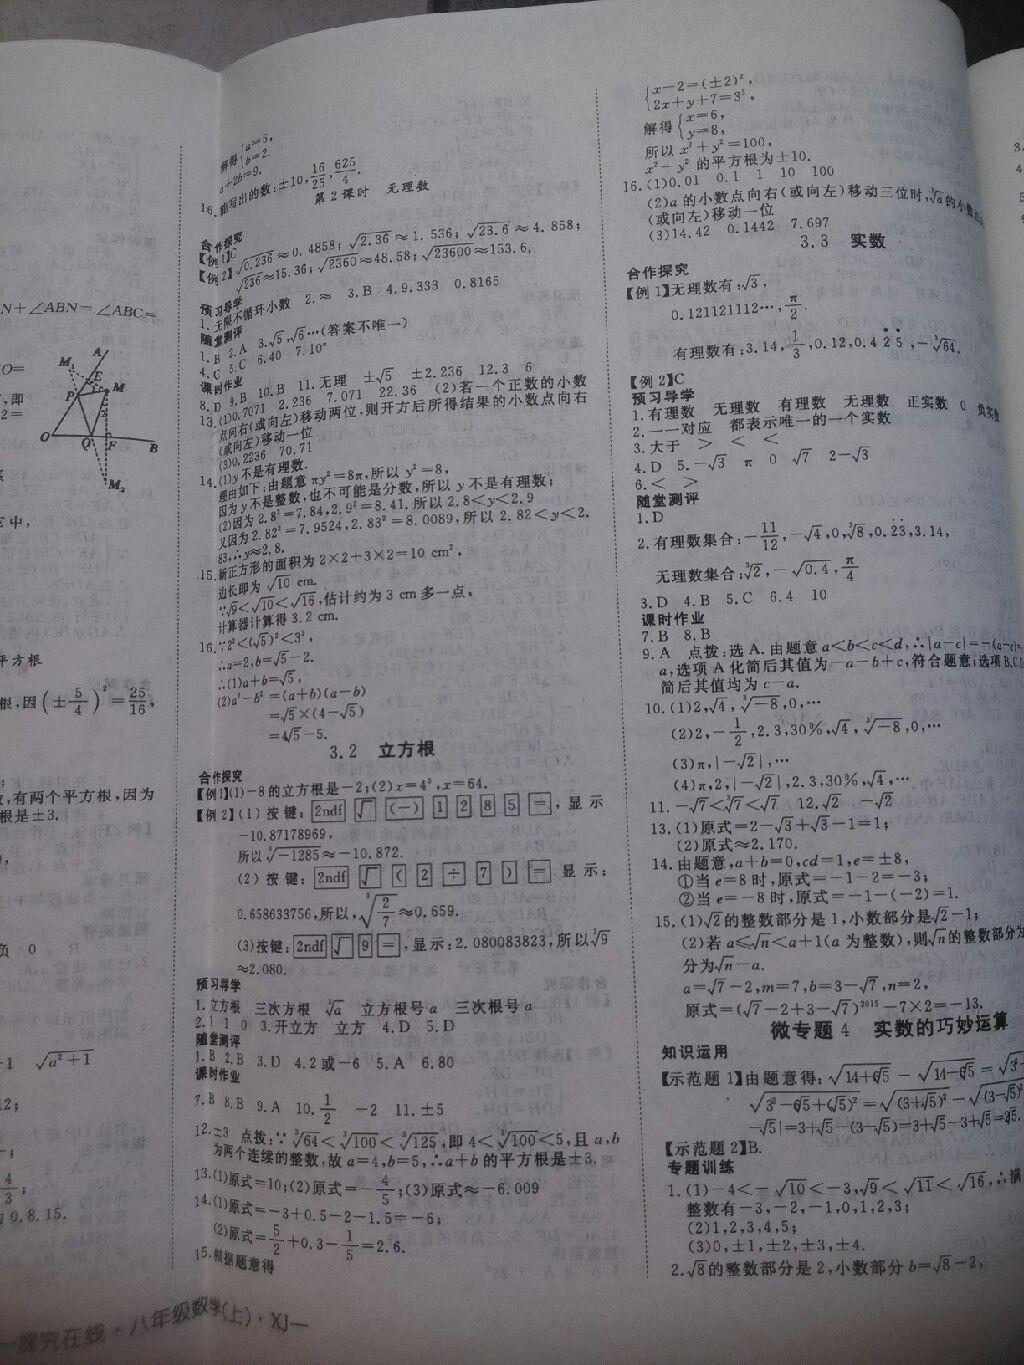 N+∠ABN=∠ABC=
O=
,即
2=
M₁
A
E
P
M
O
Q
F
B
M₂
它中,
平方根
根,因(±5/4)²=25/16,
,有两个平方根,因为
根是±3.
负 0
√(a²+1)
12;
4/3;
的0,8,15.
解得{a=5,
b=2.
a+2b=9.
16.能写出的数:±10,16/25,625/4.
第2课时 无理数
合作探究
【例1】C
【例2】√0.236≈0.4858;√2.36≈1.536;√23.6≈4.858;
√236≈15.36;√2360≈48.58;√23600≈153.6.
预习导学
1.无限不循环小数 2.≈ 3.B 4.9.333 0.8165
随堂测评
1.B 2.A 3.√5,√6…(答案不唯一)
4.C 5.C 6.40 7.10⁰
课时作业
8.D 9.B 10.B 11.无理 ±√5 ±2.236 12.3 6
13.(1)0.7071 2.236 7.071 22.36 (2)若一个正数的小数
点向右(或向左)移动两位,则开方后所得结果的小数点向右
(或向左)移动一位
(3)0.2236 70.71
14.(1)y不是有理数.
理由如下:由题意πy²=8π,所以y²=8,
因为y不是整数,也不可能是分数,所以y不是有理数;
(2)因为2.8²=7.84,2.9²=8.41.所以2.8<y<2.9
又因为2.82²=7.9524,2.83²=8.0089,所以2.82<y<2.
83,∴y≈2.8.
15.新正方形的面积为2×2+3×2=10 cm²,
边长即为√10 cm.
∵√9<√10<√16,估计约为3 cm多一点,
计算器计算得3.2 cm.
16.∵2²<(√5)²<3²,
∴a=2,b=√5-2.
∴(1)a+b=√5,
(2)a²-b²=(a+b)(a-b)
=√5×(4-√5)
=4√5-5.
3.2 立方根
合作探究
【例1】(1)-8的立方根是-2;(2)x=4³,x=64.
【例2】(1)按键:2ndf √ (-) 1 2 8 5 =,显示
-10.87178969,
所以∛-1285≈-10.872.
(2)按键:2ndf √ ( 2 ÷ 7 ) = 显示:
0.658633756,所以,∛(2/7)≈0.659.
(3)按键:2ndf √ 9 =,显示:2.080083823,所以∛9
≈2.080.
预习导学
1.立方根 三次方根 ∛a 立方根号a 三次根号a
2.1 1 0 3.开立方 立方 4.D 5.D
随堂测评
1.B 2.B 3.D 4.2或-6 5.A 6.80
课时作业
7.B 8.B 9.A 10.1/2 -2 11.±5
12.±3 点拨:∵∛64<∛100<∛125,即4<∛100<5,且a,b
为两个连续的整数,故a=4,b=5,∴a+b的平方根是±3.
13.(1)原式=10;(2)原式=-4/5;(3)原式≈-6.009
14.(1)原式=-3+0.5-2-1.5=-6;
(2)原式=5/2+0.3-1/5=2.6.
15.根据题意得
探究在线·八年级数学(上)·XJ
{x-2=(±2)²,
2x+y+7=3³,
解得{x=6,
y=8,
所以x²+y²=100,
x²-y²的平方根为±10.
16.(1)0.01 0.1 1 10 100
(2)a的小数点向右(或向左)移动三位时,∛a的小数点
(或向左)移动一位
(3)14.42 0.1442 7.697
3.3 实数
合作探究
【例1】无理数有:√3,
0.121121112…,π/2.
有理数有:3.14,1/3,0.12,0.42̇5̇,-∛64.
【例2】C
预习导学
1.有理数 无理数 有理数 无理数 正实数 0 负实数
2.一一对应 都表示唯一的一个实数
3.大于 > < <
4.D 5.-√3 π 0 √7 2-√3
6.< >
随堂测评
1.D
2.有理数集合:-11/12,-√4,0,∛8,0.2̇3̇,3.14,
无理数集合:∛2,-√0.4,π/4
3.D 4.B 5.C 6.4 10
课时作业
7.B 8.B
9.A 点拨:选A.由题意a<b<c<d,∴|a-c|=-(a-c)=
a,选项A化简后其值为-a-b+c,符合题意;选项B,C,D
简后其值均为c-a.
10.(1)2,√4,∛-8,0,…
(2)2,-1/2,2.3,30%,√4,∛-8,0,…
(3)π,|-√2|,…
(4)π,2,|-√2|,2.3,30%,√4,…
11.-√7<∛7<√7 12.√2 -√2
13.(1)原式=2-√3+√3-1=1;
(2)原式≈2.170.
14.由题意,a+b=0,cd=1,e=±8,
①当e=8时,原式=-1-2=-3;
②当e=-8时,原式=-1-(-2)=1.
15.(1)√2的整数部分是1,小数部分是√2-1;
(2)若a≤√n<a+1(a为整数),则√n的整数部分为
分为√n-a.
a=√7-2,m=7,b=3-√7,n=2,
原式=(√7-2+3-√7)²⁰¹⁵-7×2=-13.
微专题4 实数的巧妙运算
知识运用
【示范题1】由题意得:√(14+6√5)-√(14-6√5)=
√(3²-6√5+(√5)²)=√((3+√5)²)-√((3-√5)²)
-√5|=3+√5-(3-√5)=3+√5-3+√5=2√5.
【示范题2】B.
专题训练
1.(1)-4<-√10<-3,√9<√11<√16,∴满
整数有-3,-2,-1,0,1,2,3;
(2)1,2,3,4,5;
(3)0,±1,±2,±3,±4.
2.√8的整数部分是2,小数部分b=√8-2,
3.
4
5